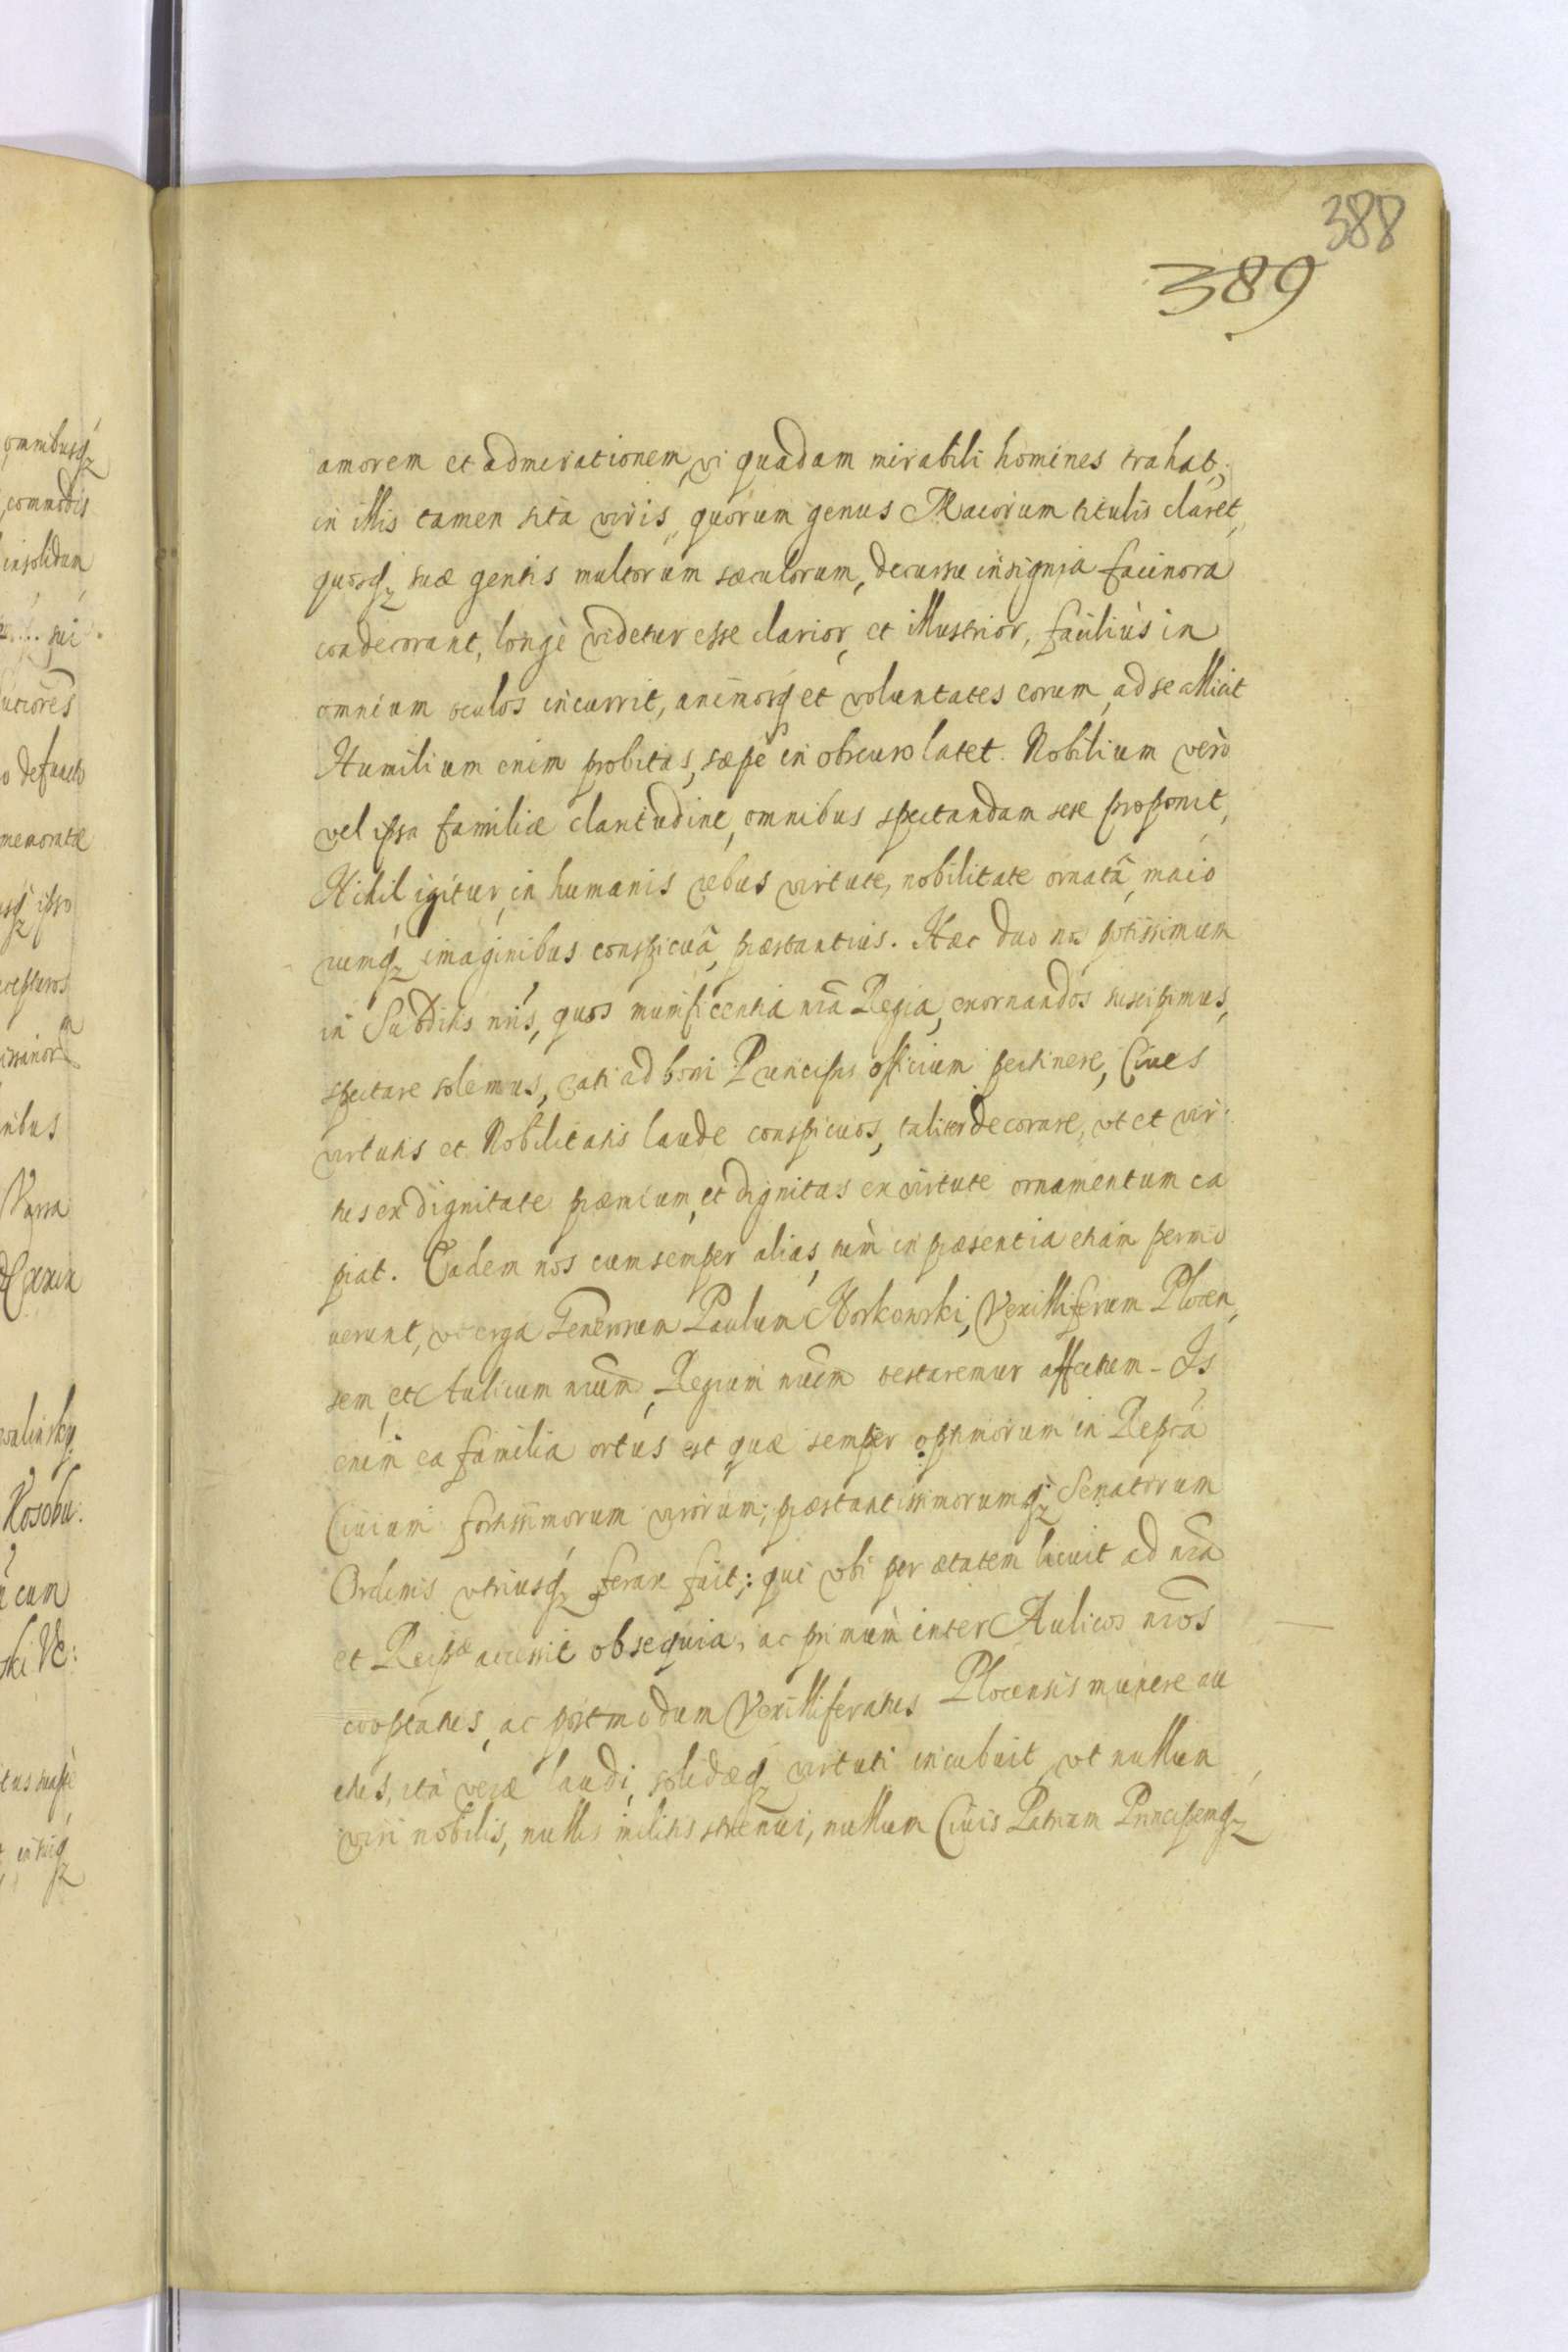 388
389
amorem et admirationem, vi quadam mirabili homines trahat,
in illis tamen sita viris, quorum genus Maiorum titulis claret,
quosq₃ suæ gentis multorum sæculorum, decursu insignia facinora
condecorant, longè videtur esse clarior, et illustrior, faciliùs in
omnium oculos incurrit, animosq₃ et voluntates eorum, ad se allicit
Humilium enim probitas, sæpè in obscuro latet. Nobilium verò
vel ipsa familiæ claritudine, omnibus spectandam sese proponit,
Nihil igitur, in humanis rebus virtute, nobilitate ornatâ, maio
rumq₃ imaginibus conspicuâ, præstantius. Hæc duo nos potissimum
in Subditis nr̃is, quos munificentia nr̃a Regia, exornandos suscipimus,
spectare solemus, rati ad boni Principis officium pertinere, Ciues
virtutis et Nobilitatis laude conspicuos, taliter decorare, vt et vir
tus ex dignitate præmium, et dignitas ex virtute ornamentum ca
piat. Eadem nos cum semper alias, tùm in præsentia etiam permo
uerunt, vt erga Generosum Paulum Norkowski, Vexilliferum Plocen,
sem, et Aulicum nr̃um, Regium nr̃um testaremur affectum - Is
enim ea familia ortus est quæ semper optimorum in Repca
Ciuium fortissimorum virorum, præstantissimorumq₃ Senatorum
Ordinis vtriusq₃ ferax fuit; qui vbi per ætatem licuit ad nr̃a
et Reipæ accessit obsequia, ac primùm inter Aulicos nr̃os
cooptatus, ac postmodum Vexilliferatus Plocensis munere au
ctus, ità veræ laudi, solidæq₃ virtuti incubuit, vt nullum
viri nobilis, nullis militis strenui, nullum Ciuis Patriam Principemq₃
omnibusq₃
commodis
insolidum
defuncto
memoratæ
ipso
Kosobu:
cum